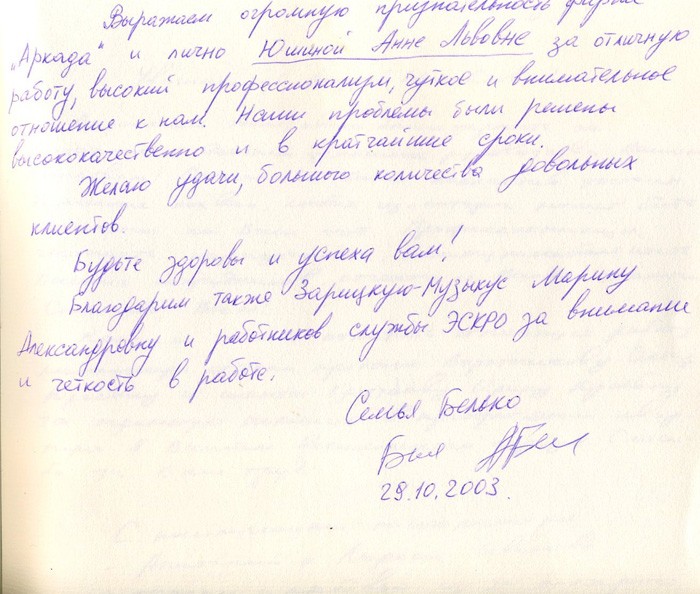 Выражаем огромную признательность фирме
„Аркада" и лично Юшиной Анне Львовне за отличную
работу, высокий профессионализм, чуткое и внимательное
отношение к нам. Наши проблемы были решены
высококачественно и в кратчайшие сроки.
Желаю удачи, большого количества довольных
клиентов.
Будьте здоровы и успеха вам!
Благодарим также Зарицкую-Музыкус Марину
Александровну и работников службы ЭСКРО за внимание
и четкость в работе.
Семья Белько
29.10.2003.